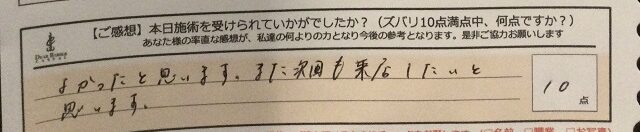 【ご感想】本日施術を受けられていかがでしたか？（ズバリ10点満点中、何点ですか？）
あなた様の率直な感想が、私達の何よりの力となり今後の参考となります。是非ご協力お願いします
よかったと思います。また次回も来店したいと
思います。
10
点